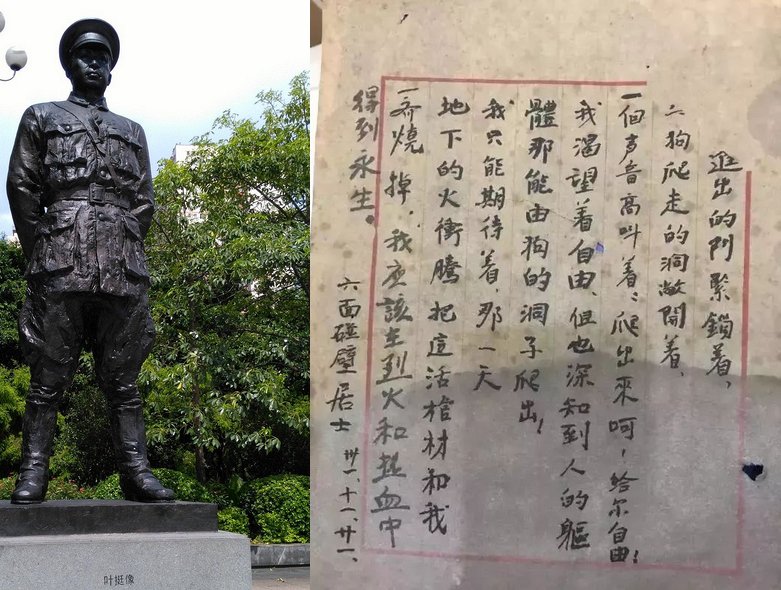 叶挺像
迯出的門緊鎖着、
二狗爬走的洞敞開着、
一個声音高叫着：爬出來呵！給尔自由！
我渴望着自由、但也深知到人的軀
體那能由狗的洞子爬出！
我只能期待着、那一天
地下的火衝騰把這活棺材和我
一齐燒掉，我应該在烈火和热血中
得到永生。
六面碰壁居士 卅一、十一、廿一、